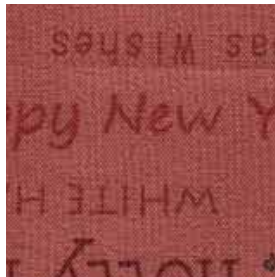 as Wishes
ppy New Y
WHITE
Holly